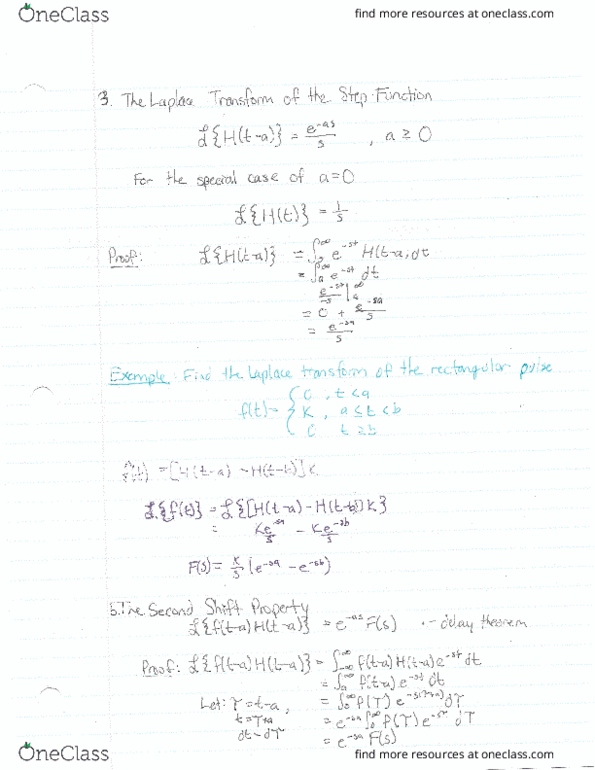 OneClass
find more resources at oneclass.com
3. The Laplace Transform of the Step Function
ℒ{H(t-a)} = e^-as/s , a ≥ 0
For the special case of a=0
ℒ{H(t)} = 1/s
Proof: ℒ{H(t-a)} = ∫₀^∞ e^-st H(t-a) dt
= ∫ₐ^∞ e^-st dt
e^-st/-s |ₐ^∞
= 0 + e^-sa/s
= e^-sa/s
Example: Find the Laplace transform of the rectangular pulse
f(t) = { 0 , t < a
K , a ≤ t < b
0 t ≥ b
f(t) = [H(t-a) - H(t-b)] K
ℒ{f(t)} = ℒ{[H(t-a) - H(t-b)] K}
= Ke^-sa/s - Ke^-sb/s
F(s) = K/s (e^-sa - e^-sb)
b. The Second Shift Property
ℒ{f(t-a) H(t-a)} = e^-as F(s) - delay theorem
Proof: ℒ{f(t-a) H(t-a)} = ∫₋∞^∞ f(t-a) H(t-a) e^-st dt
= ∫ₐ^∞ f(t-a) e^-st dt
Let: τ = t-a , = ∫₀^∞ f(τ) e^-s(τ+a) dτ
t = τ+a = e^-sa ∫₀^∞ f(τ) e^-sτ dτ
dt = dτ = e^-sa F(s)
OneClass
find more resources at oneclass.com